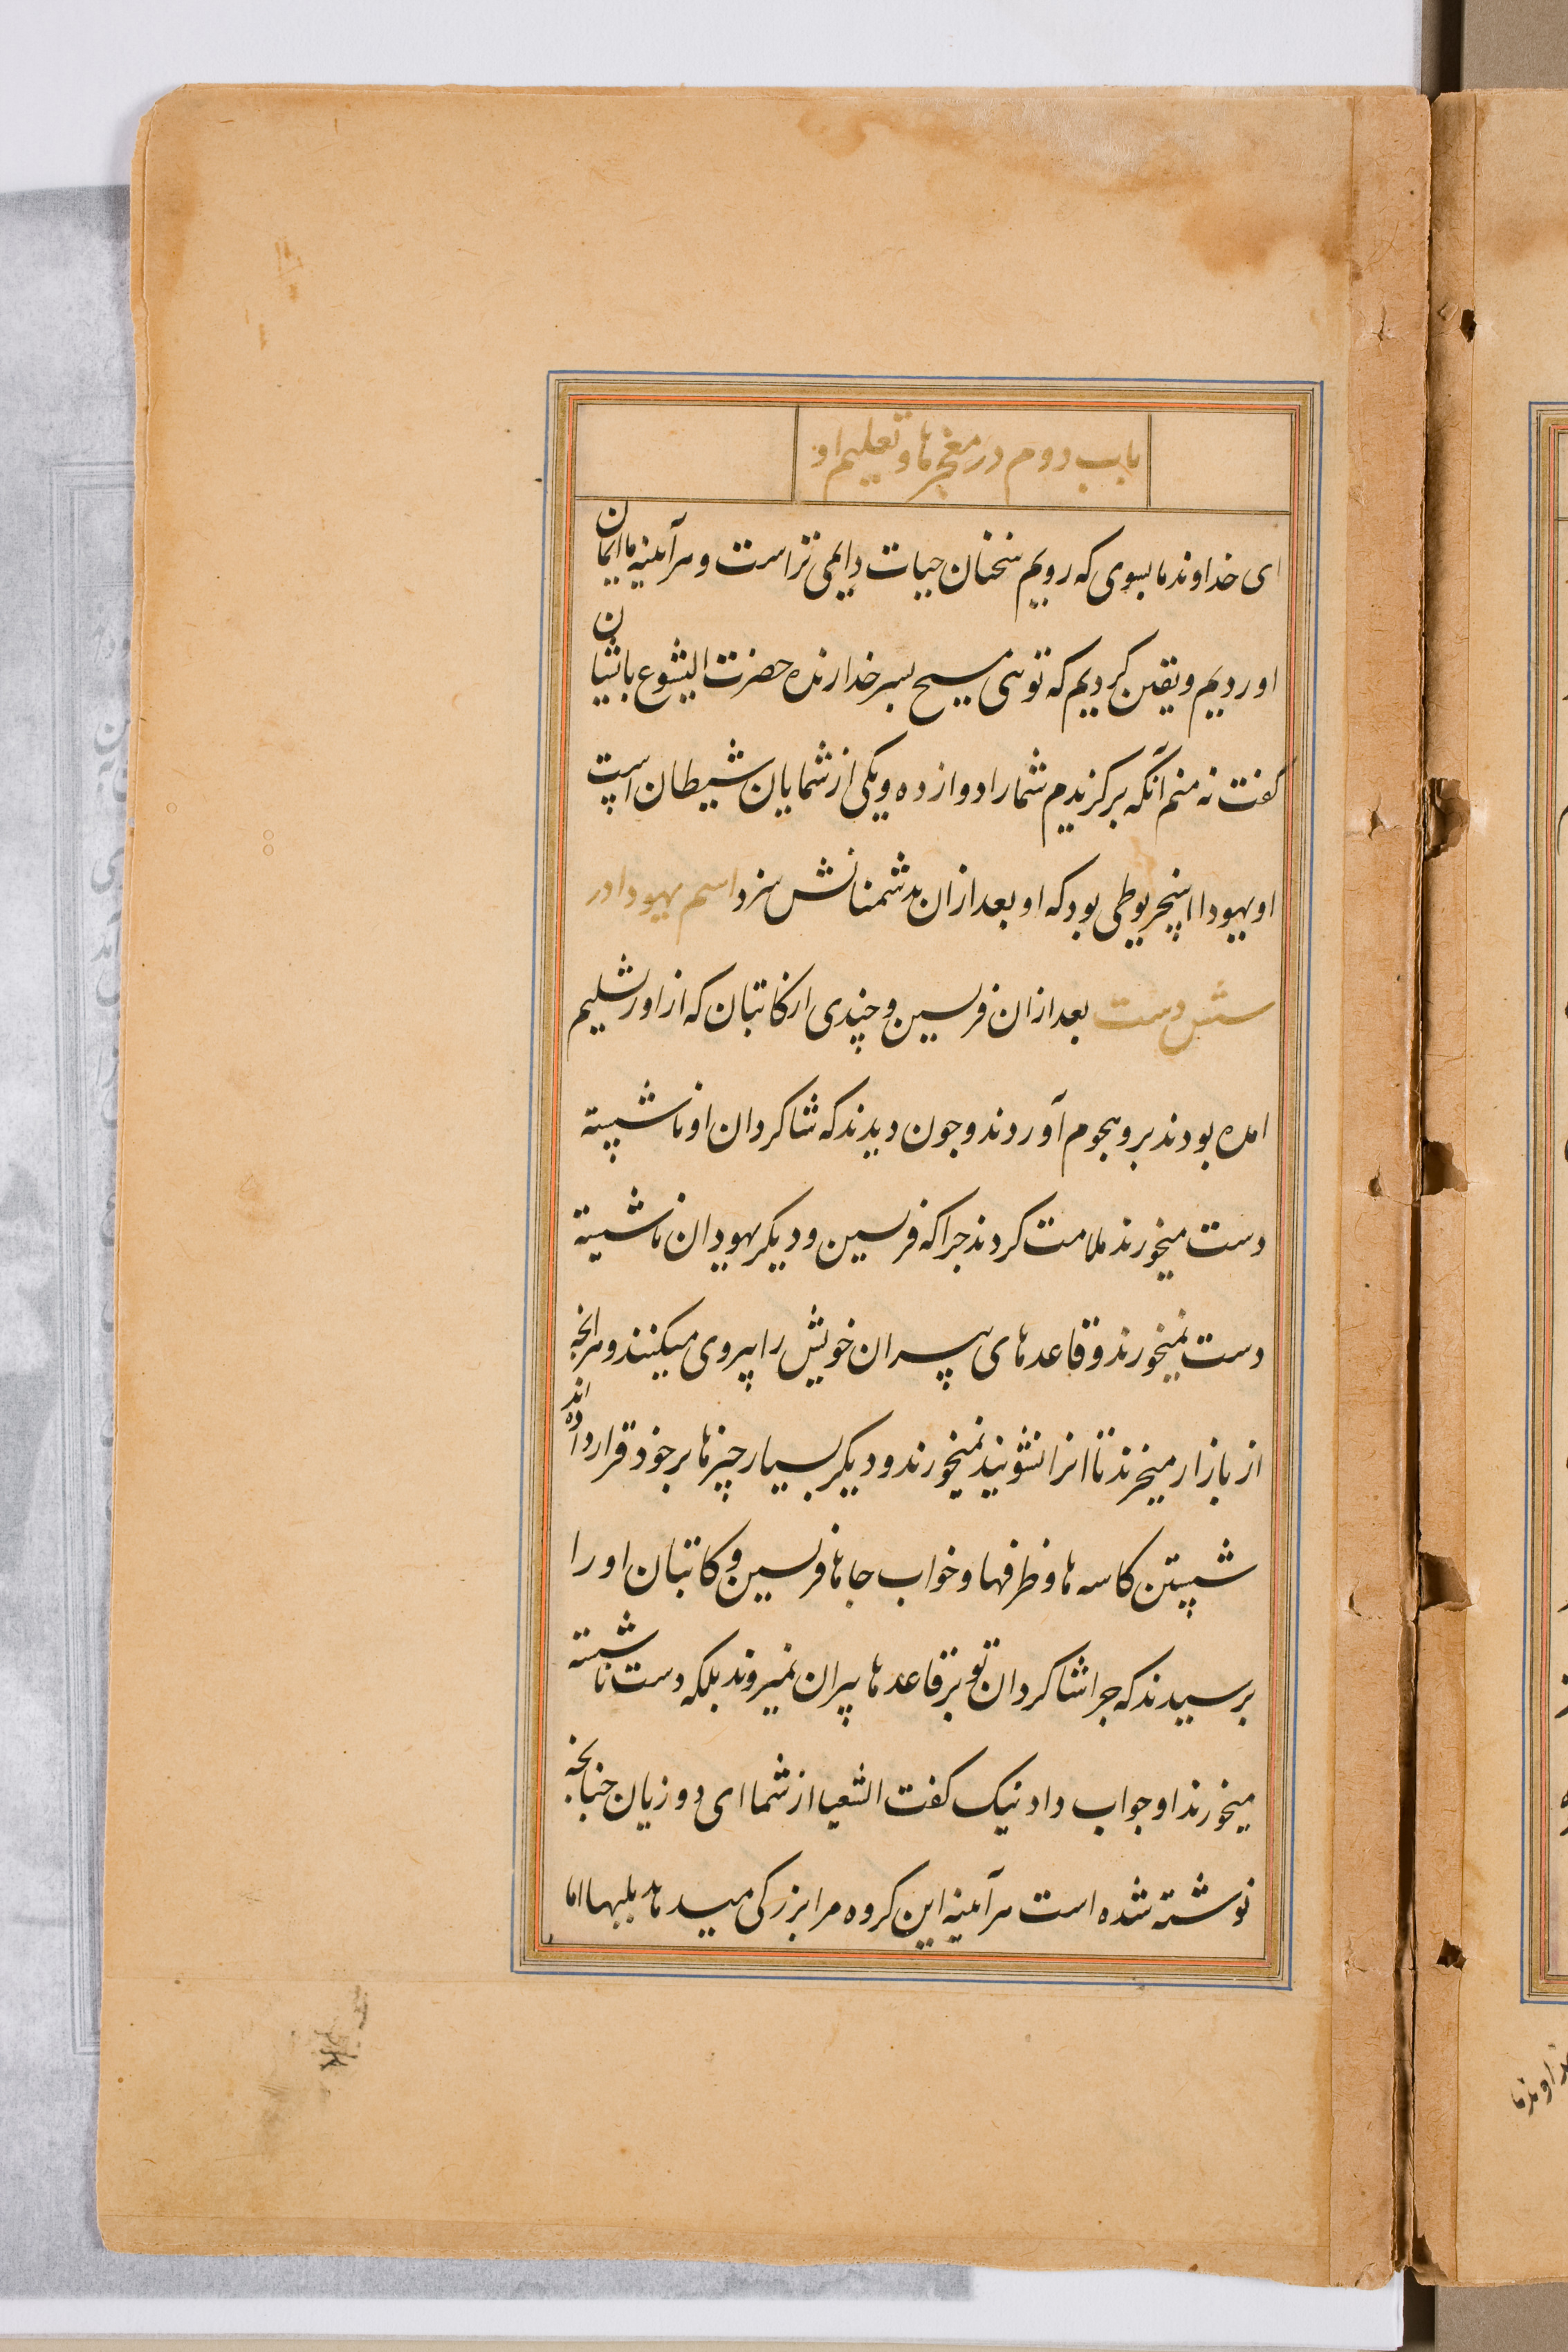 باب دوم در معجزها و تعلیم او
ای خداوند ما بسوی که رویم سخنان حیات دایمی تراست و هرآینه ما ایمان
اوردیم و یقین کردیم که توئی مسیح پسر خدا زنده حضرت ایشوع باایشان
کفت نه منم آنکه برکزیدم شما را دوازده و یکی از شمایان شیطان است
او یهودا اسخریوطی بود که او بعد ازان بدشمنانش سپرد اسم یهودا در
ششن دست بعد ازان فریسین و چندی از کاتبان که از اورشلیم
امده بودند برو هجوم آوردند و جون دیدند که شاکردان او ناشسته
دست میخورند ملامت کردند جرا که فریسین و دیکر یهودان ناشسته
دست نمیخورند و قاعدهای پیران خویش را پیروی میکنند و هرانجه
از بازار میخرند تا انرا نشویند نمیخورند و دیکر بسیار چیزها بر خود قرار داده اند
شستن کاسه ها و ظرفها و خواب جاها فریسین و کاتبان او را
پرسیدند که جرا شاکردان تو بر قاعدها پیران نمیروند بلکه دست ناشسته
میخورند او جواب داد نیک کفت اشعیا از شما ای دو زبان جنانجه
نوشته شده است هرآینه این کروه مرا بزرکی میدهد بلبها اما
خداوند ما